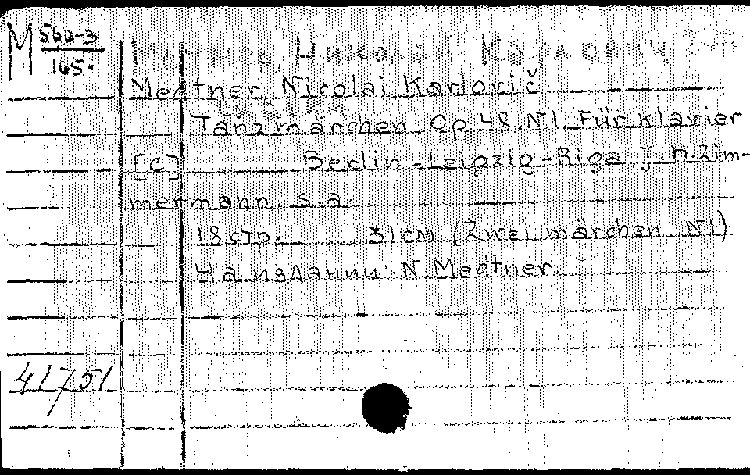 М 566-3
165.
Николай Карлович
Medtner, Nicolai Karlovič
Tanzmärchen. Op. 48, N1. Für Klavier
[c] Berlin-Leipzig-Riga, J. H. Zim-
mermann, s.a.
18 стр. 31 см (Zwei märchen N1)
На издании: N. Medtner.
41751